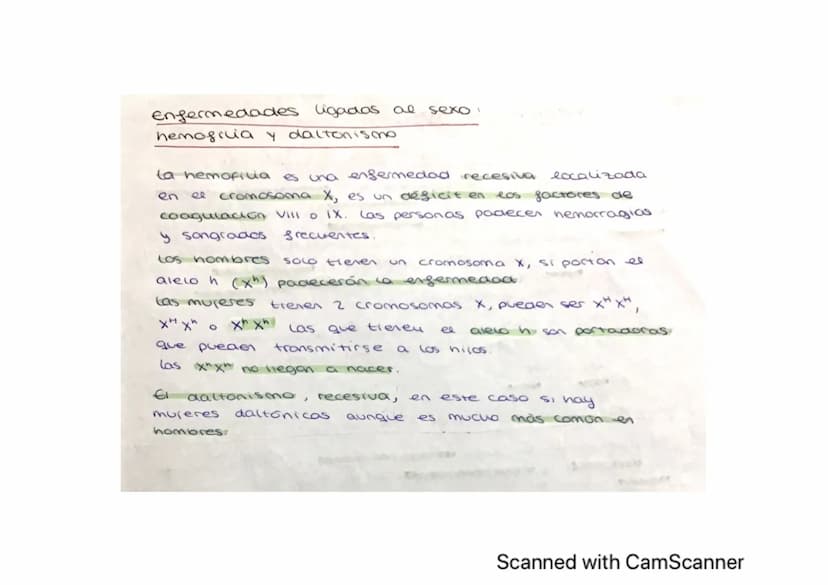 enfermedades ligadas al sexo:
hemofilia y daltonismo
La hemofilia es una enfermedad recesiva localizada
en el cromosoma X, es un déficit en los factores de
coagulación VIII o IX. Las personas padecen hemorragias
y sangrados frecuentes.
Los hombres solo tienen un cromosoma X, si portan el
alelo h (Xʰ) padecerán la enfermedad
Las mujeres tienen 2 cromosomas X, pueden ser Xᴴ Xᴴ,
Xᴴ Xʰ o Xʰ Xʰ Las que tienen el alelo h son portadoras
que pueden transmitirse a los hijos.
Las XʰXʰ no llegan a nacer.
El daltonismo, recesiva, en este caso si hay
mujeres daltónicas aunque es mucho más común en
hombres.
Scanned with CamScanner